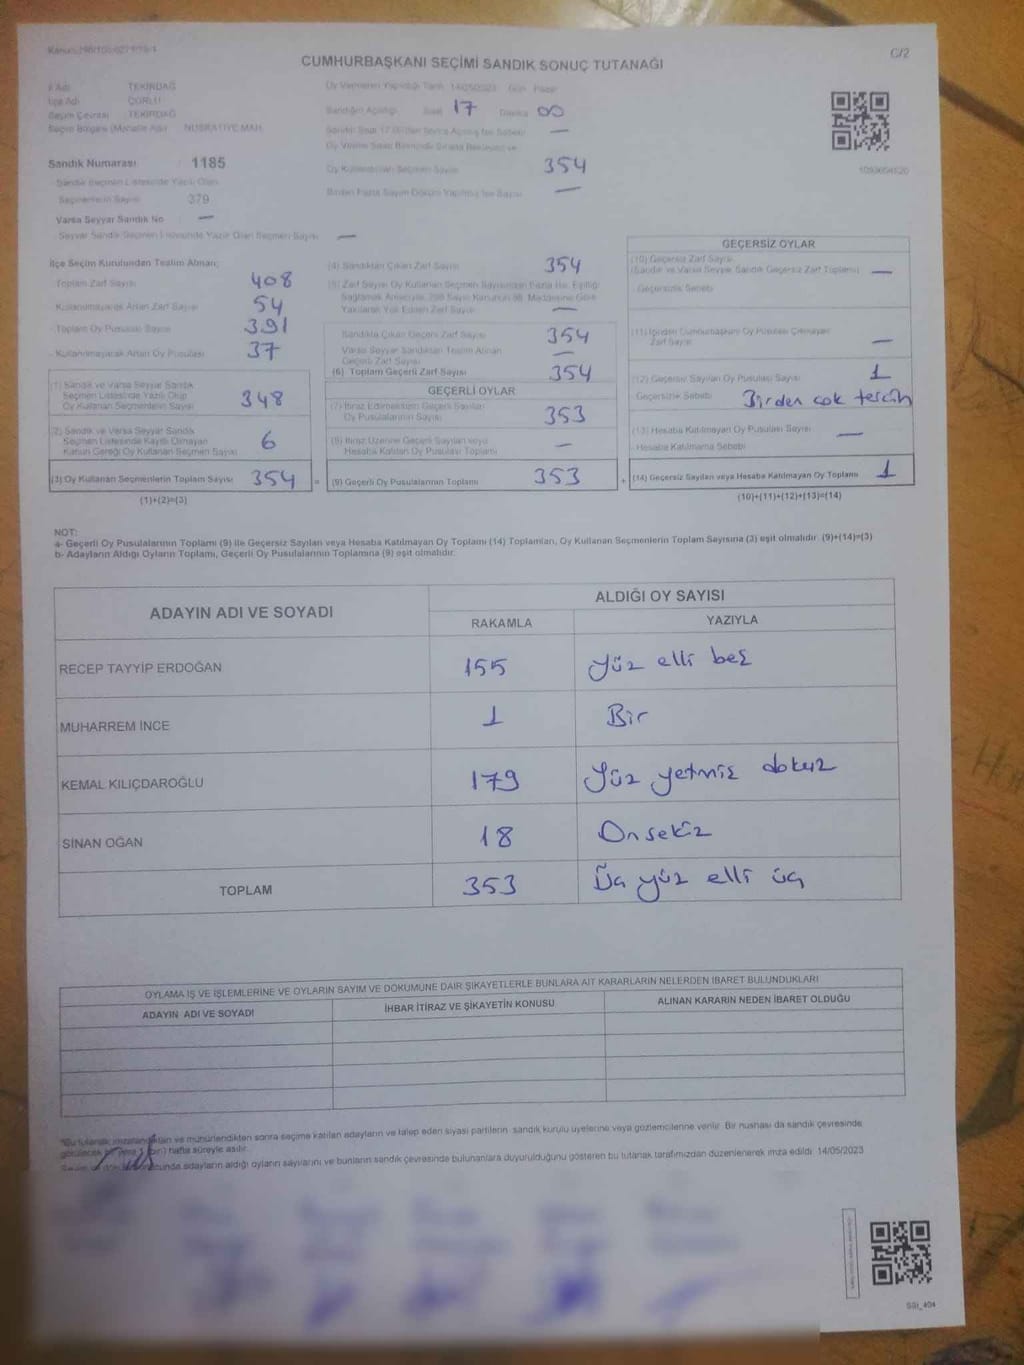 C/2
CUMHURBAŞKANI SEÇİMİ SANDIK SONUÇ TUTANAĞI
İl Adı TEKİRDAĞ
İlçe Adı ÇORLU
Seçim Çevresi TEKİRDAĞ
Seçim Bölgesi (Mahalle Adı) NUSRATİYE MAH.
Oy Vermenin Yapıldığı Tarih 14/05/2023 Gün Pazar
Sandığın Açıldığı Saat 17 Dakika 00
Sandık Saat 17.00'den Sonra Açılmış İse Sebebi —
Sandık Numarası 1185
Sandık Seçmen Listesinde Yazılı Olan
Seçmenlerin Sayısı 379
Varsa Seyyar Sandık No —
Seyyar Sandık Seçmen Listesinde Yazılı Olan Seçmen Sayısı —
Oy Kullanan Seçmen Sayısı 354
Birden Fazla Sayım Döküm Yapılmış İse Sayısı —
İlçe Seçim Kurulundan Teslim Alınan;
Toplam Zarf Sayısı 408
Kullanılmayarak Artan Zarf Sayısı 54
Toplam Oy Pusulası Sayısı 391
Kullanılmayarak Artan Oy Pusulası 37
(1) Sandık ve Varsa Seyyar Sandık
Seçmen Listesinde Yazılı Olup
Oy Kullanan Seçmenlerin Sayısı 348
(2) Sandık ve Varsa Seyyar Sandık
Seçmen Listesinde Kayıtlı Olmayan
Kanun Gereği Oy Kullanan Seçmen Sayısı 6
(3) Oy Kullanan Seçmenlerin Toplam Sayısı 354 =
(1)+(2)=(3)
(4) Sandıktan Çıkan Zarf Sayısı 354
(5) Zarf Sayısı Oy Kullanan Seçmen Sayısından Fazla İse, Eşitliği
Sağlamak Amacıyla, 298 Sayılı Kanunun 98. Maddesine Göre
Yakılarak Yok Edilen Zarf Sayısı —
Sandıkta Çıkan Geçerli Zarf Sayısı 354
Varsa Seyyar Sandıktan Teslim Alınan
Geçerli Zarf Sayısı —
(6) Toplam Geçerli Zarf Sayısı 354
GEÇERLİ OYLAR
(7) İtiraz Edilmeksizin Geçerli Sayılan
Oy Pusulalarının Sayısı 353
(8) İtiraz Üzerine Geçerli Sayılan veya
Hesaba Katılan Oy Pusulası Toplamı —
(9) Geçerli Oy Pusulalarının Toplamı 353 +
GEÇERSİZ OYLAR
(10) Geçersiz Zarf Sayısı
(Sandık ve Varsa Seyyar Sandık Geçersiz Zarf Toplamı) —
Geçersizlik Sebebi
(11) İçinden Cumhurbaşkanı Oy Pusulası Çıkmayan
Zarf Sayısı —
(12) Geçersiz Sayılan Oy Pusulası Sayısı 1
Geçersizlik Sebebi Birden çok tercih
(13) Hesaba Katılmayan Oy Pusulası Sayısı —
Hesaba Katılmama Sebebi
(14) Geçersiz Sayılan veya Hesaba Katılmayan Oy Toplamı 1
(10)+(11)+(12)+(13)=(14)
NOT:
a- Geçerli Oy Pusulalarının Toplamı (9) ile Geçersiz Sayılan veya Hesaba Katılmayan Oy Toplamı (14) Toplamları, Oy Kullanan Seçmenlerin Toplam Sayısına (3) eşit olmalıdır. (9)+(14)=(3)
b- Adayların Aldığı Oyların Toplamı, Geçerli Oy Pusulalarının Toplamına (9) eşit olmalıdır.
ADAYIN ADI VE SOYADI ALDIĞI OY SAYISI
RAKAMLA YAZIYLA
RECEP TAYYİP ERDOĞAN 155 Yüz elli beş
MUHARREM İNCE 1 Bir
KEMAL KILIÇDAROĞLU 179 Yüz yetmiş dokuz
SİNAN OĞAN 18 Onsekiz
TOPLAM 353 Üç yüz elli üç
OYLAMA İŞ VE İŞLEMLERİNE VE OYLARIN SAYIM VE DÖKÜMÜNE DAİR ŞİKAYETLERLE BUNLARA AİT KARARLARIN NELERDEN İBARET BULUNDUKLARI
ADAYIN ADI VE SOYADI İHBAR İTİRAZ VE ŞİKAYETİN KONUSU ALINAN KARARIN NEDEN İBARET OLDUĞU
*Bu tutanak imzalandıktan ve mühürlendikten sonra seçime katılan adayların ve talep eden siyasi partilerin sandık kurulu üyelerine veya gözlemcilerine verilir. Bir nüshası da sandık çevresinde
hafta süreyle asılır.
adayların aldığı oyların sayılarını ve bunların sandık çevresinde bulunanlara duyurulduğunu gösteren bu tutanak tarafımızdan düzenlenerek imza edildi. 14/05/2023
SSt_404